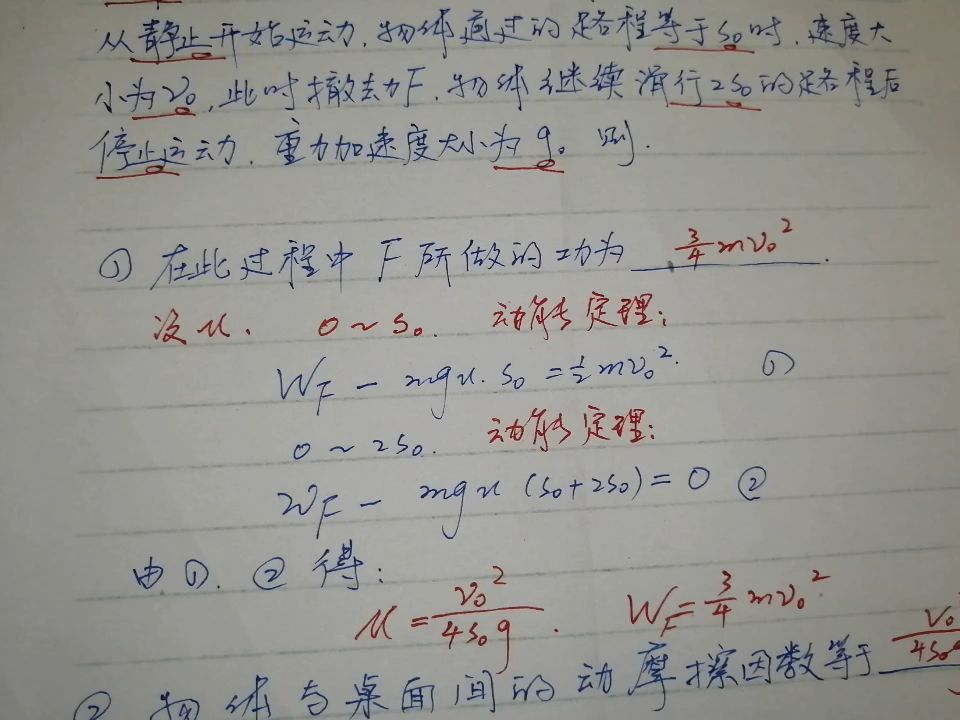 从静止开始运动,物体通过的路程等于S₀时,速度大
小为V₀,此时撤去力F,物体继续滑行2S₀的路程后
停止运动,重力加速度大小为g。则.
① 在此过程中F所做的功为 3/4 mv₀² .
设μ. 0~S₀. 动能定理:
W_F - mgμ·S₀ = ½mv₀². ①
0~2S₀. 动能定理:
W_F - mgμ(S₀+2S₀)=0 ②
由①.②得:
μ = V₀²/4S₀g . W_F = 3/4 mv₀²
② 物体与桌面间的动摩擦因数等于 V₀/4S₀g